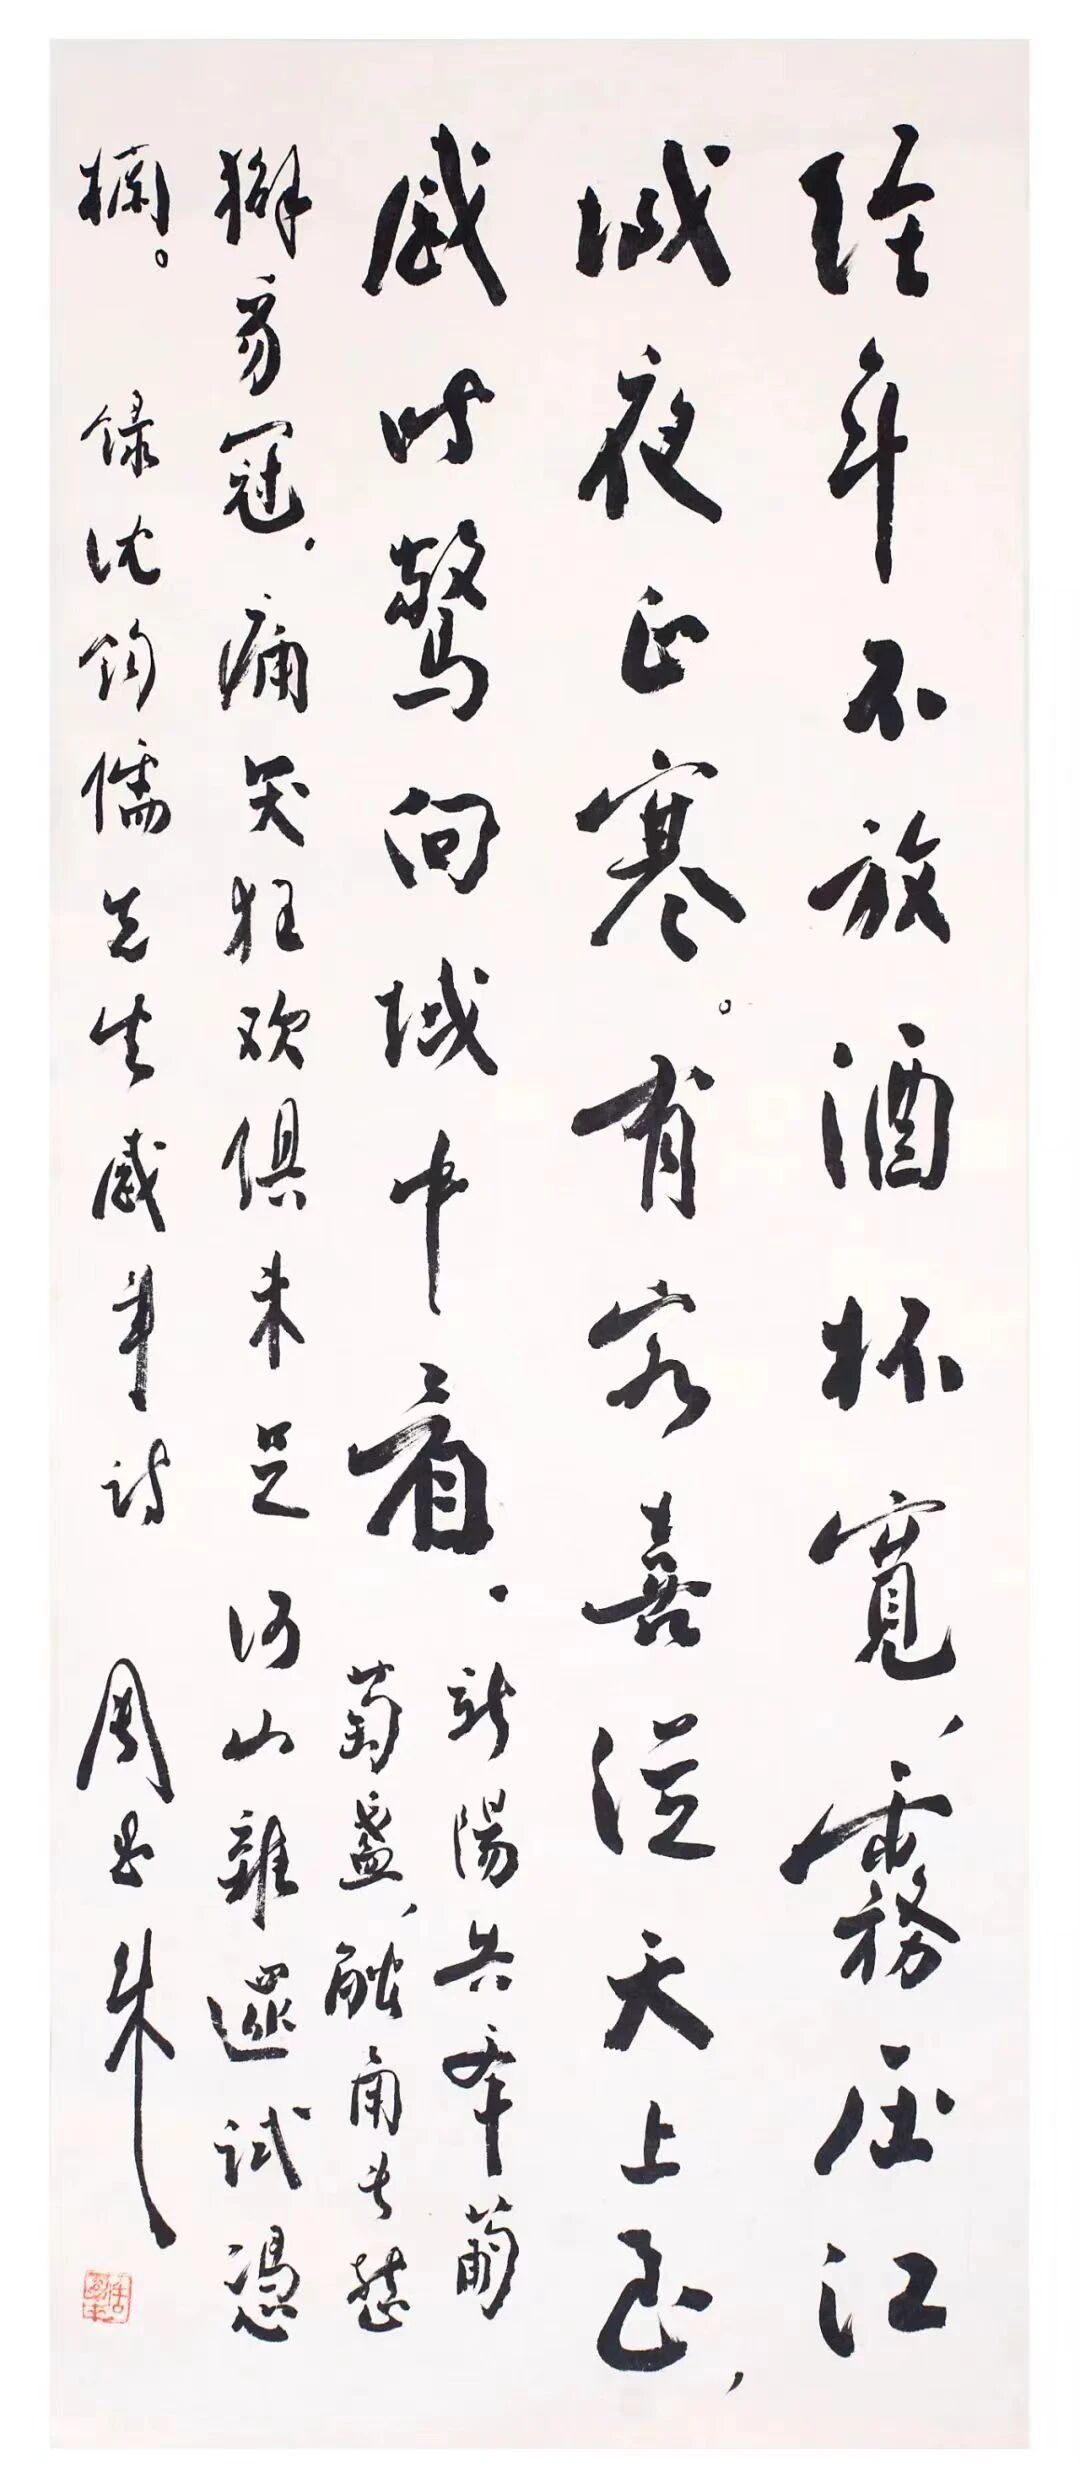 经年不放酒杯宽,雾压江
城夜正寒。有客喜从天上至,
感时惊问域中看.
新阳共举葡
萄盏,触角长惭
獬豸冠.痛哭狂欢俱未足河山杂遝试凭
栏。 录沈钧儒先生感年诗 周